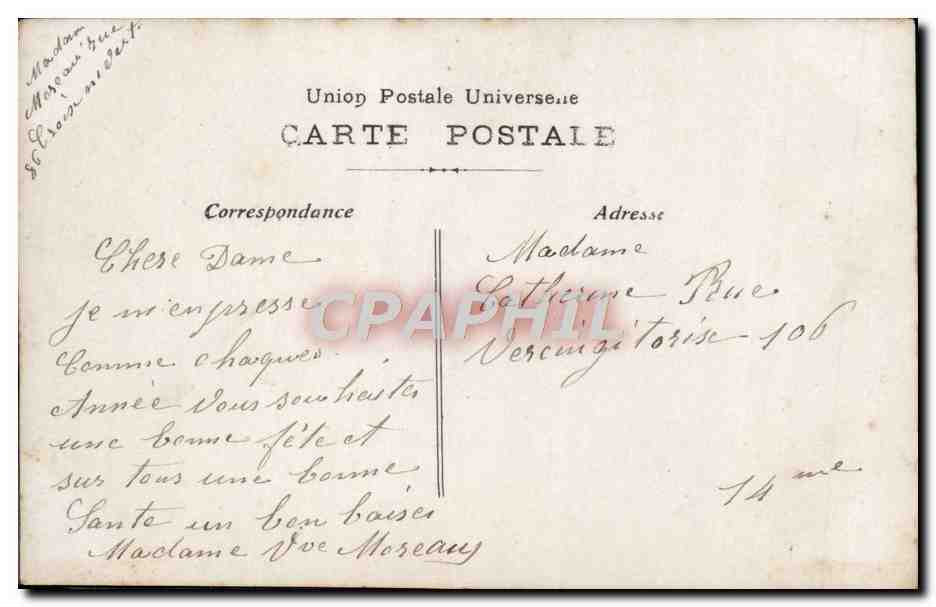 Madam
Moreau rue
Croix nivert
86
Union Postale Universelle
CARTE POSTALE
Correspondance
Chere Dame
je m'enpresse
Comme chaques
Année Vous souhaiter
une bonne fête et
sur tous une bonne
Sante un bon baiser
Madame Vve Moreau
Adresse
Madame
Catherine Rue
Vercingitorise 106
14 me
CPAPHIL